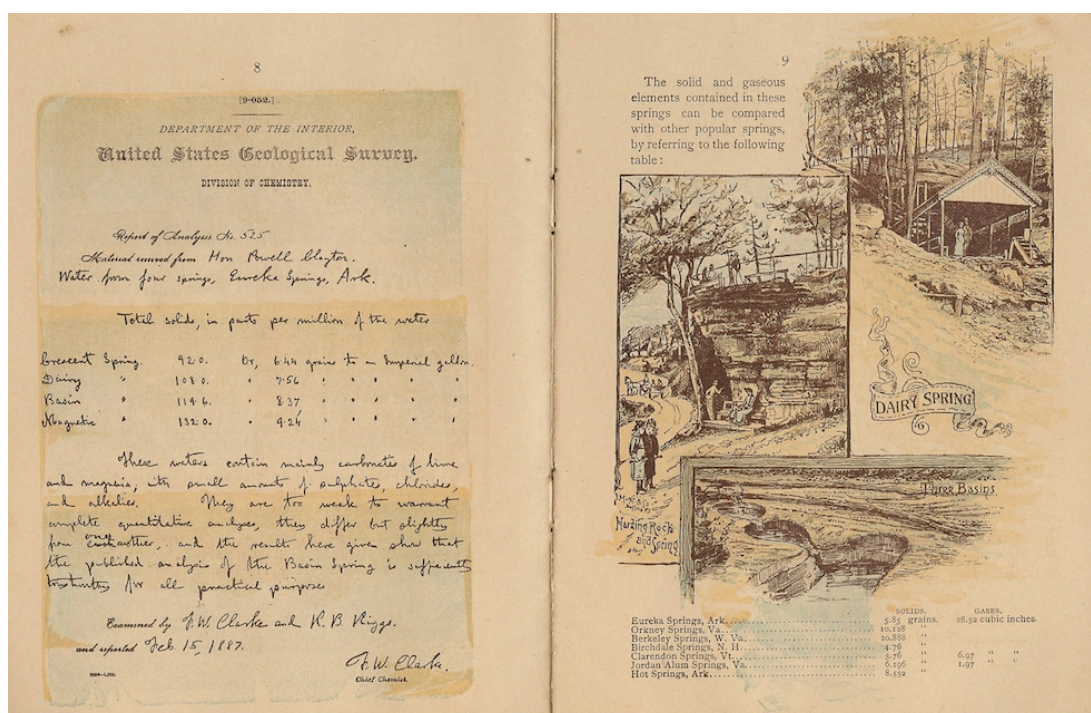 8
[9-052.]
DEPARTMENT OF THE INTERIOR,
United States Geological Survey.
DIVISION OF CHEMISTRY.
Report of Analysis No. 525
Material received from Hon Powell Clayton.
Water from four springs, Eureka Springs, Ark.
Total solids, in parts per million of the water
Crescent Spring. 92.0. Or, 6.44 grains to an Imperial gallon.
Dairy " 108.0. " 7.56 " " " " "
Basin " 114.6. " 8.37 " " " " "
Magnetic " 132.0. " 9.24 " " " " "
These waters contain mainly carbonates of lime
and magnesia, with small amounts of sulphates, chlorides,
and alkalies. They are too weak to warrant
complete quantitative analyses, they differ but slightly
from one another, and the results here given show that
the published analysis of the Basin Spring is sufficiently
trustworthy for all practical purposes
Examined by F. W. Clarke and R. B. Riggs.
and reported Feb 15, 1887.
F. W. Clarke.
Chief Chemist.
9
The solid and gaseous
elements contained in these
springs can be compared
with other popular springs,
by referring to the following
table:
DAIRY SPRING
Harding Rock
and Spring
Three Basins
SOLIDS. GASES.
Eureka Springs, Ark. 5.85 grains. 28.52 cubic inches.
Orkney Springs, Va. 10.128 "
Berkeley Springs, W. Va. 10.888 "
Birchdale Springs, N. H. 4.76 "
Clarendon Springs, Vt. 5.76 " 6.97 " "
Jordan Alum Springs, Va. 6.196 " 1.97 " "
Hot Springs, Ark. 8.552 "